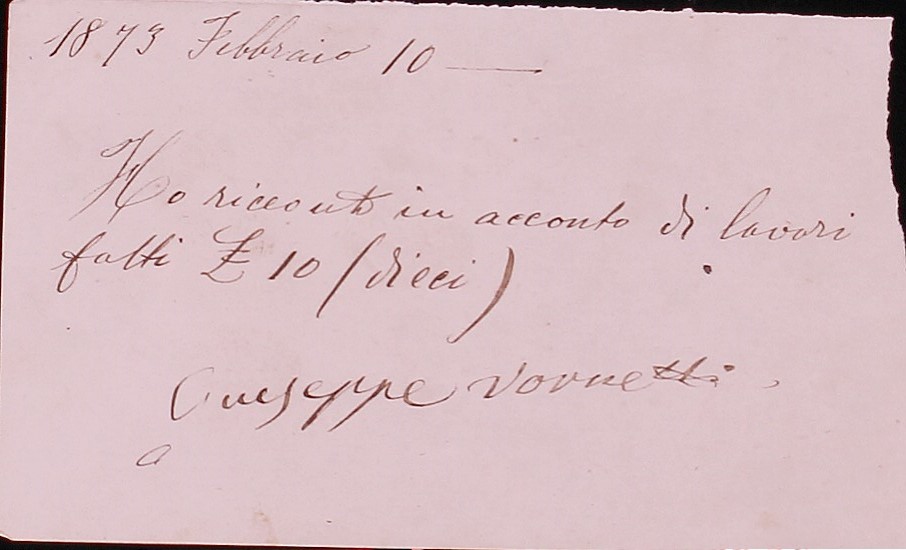 1873 Febbraio 10 —
Ho riceouto in acconto di lavori
fatti £ 10 (dieci)
Giuseppe Vonnetti
a